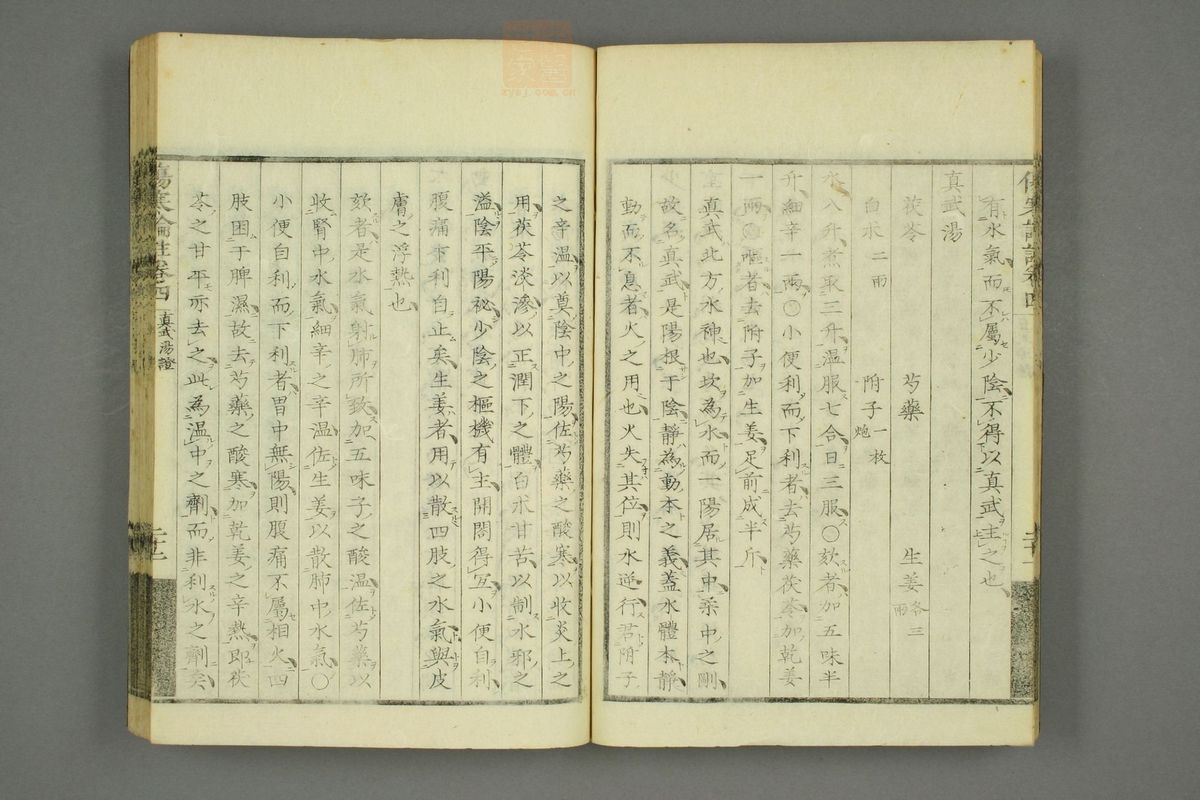 有水氣而不屬少陰不得以真武主之也
真武湯
茯苓 芍藥 生姜各三兩
白朮二兩 附子一枚炮
水八升煮取三升温服七合日三服〇欬者加五味半
升細辛一兩〇小便利而下利者去芍藥茯苓加乾姜
一兩〇嘔者去附子加生姜足前成半斤
真武北方水神也坎為水而一陽居其中柔中之剛
故名真武是陽根于陰靜為動本之義蓋水體本靜
動而不息者火之用也火失其位則水逆行君附子
之辛温以奠陰中之陽佐芍藥之酸寒以收炎上之
用茯苓淡滲以正潤下之體白朮甘苦以制水邪之
溢陰平陽祕少陰之樞機有主開闔得宜小便自利
腹痛下利自止矣生姜者用以散四肢之水氣與皮
膚之浮熱也
欬者是水氣射肺所致加五味子之酸温佐芍藥以
收腎中水氣細辛之辛温佐生姜以散肺中水氣〇
小便自利而下利者胃中無陽則腹痛不屬相火四
肢困于脾濕故去芍藥之酸寒加乾姜之辛熱即茯
苓之甘平亦去之此為温中之劑而非利水之劑矣
傷寒論註卷四 真武湯證